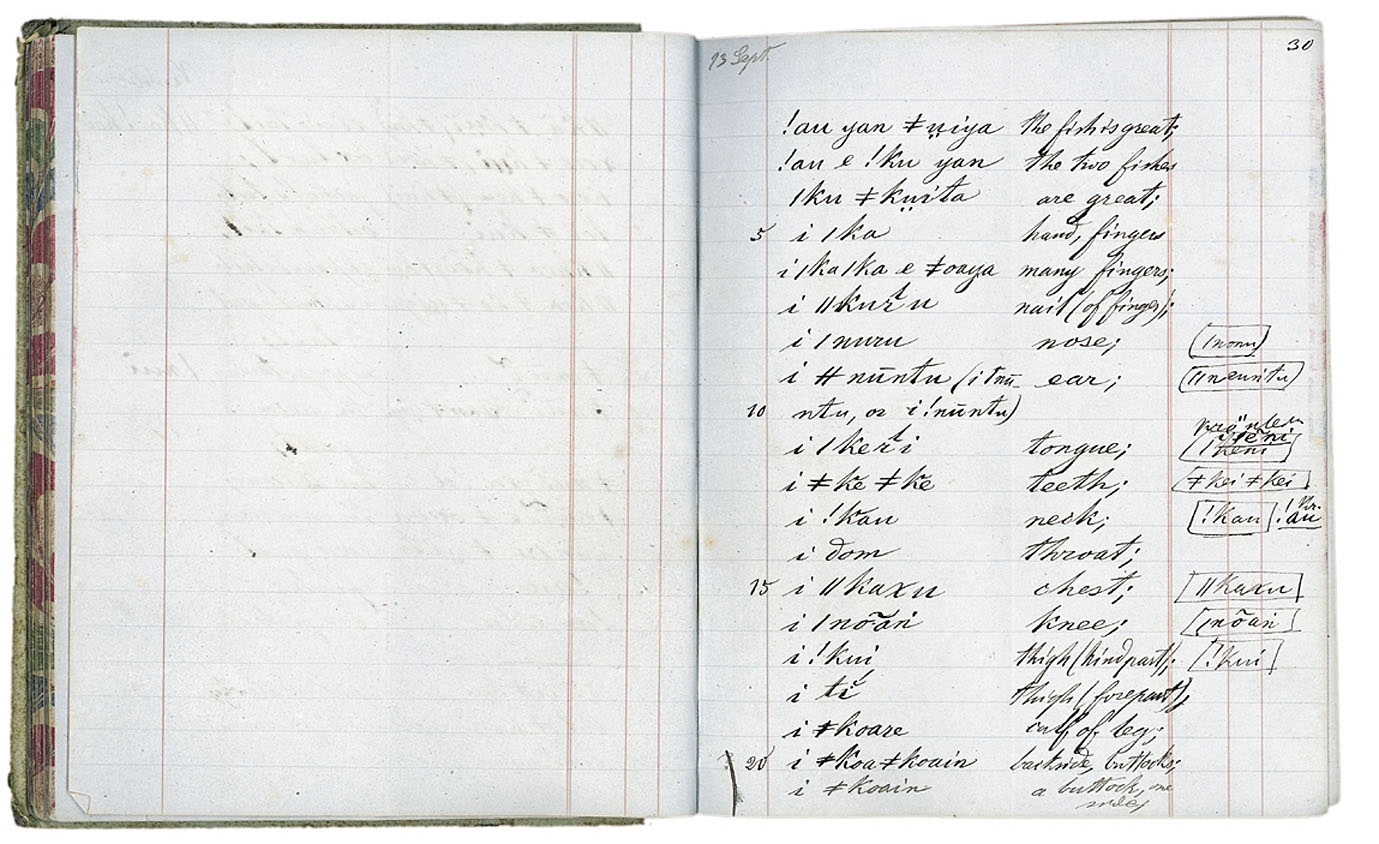 13 Sept.
30
!au yan ǂụ̈iya the fish is great;
!au e !ku yan the two fishes
/ku ǂkụ̈ita are great;
5 i /ka hand, fingers
i /ka/ka e ǂoaya many fingers;
i //kuru nail (of finger);
i /nuru nose; (/nonu)
i ǂnūntu (i tnū- ear; (//neuntu)
10 ntu, or i !nūntu)
i /keri tongue;
i ǂke ǂke teeth; [ǂkei ǂkei]
i !kau neck; [!kau] !au
i dom throat;
15 i //kaxu chest; [//kaxu]
i /nõañ knee; [/nõañ]
i !kui thigh (hind part); [!kui]
i tĭ thigh (forepart);
i ǂkoare calf of leg;
20 i ǂkoaǂkoain backside, buttocks;
i ǂkoain a buttock, one
side;